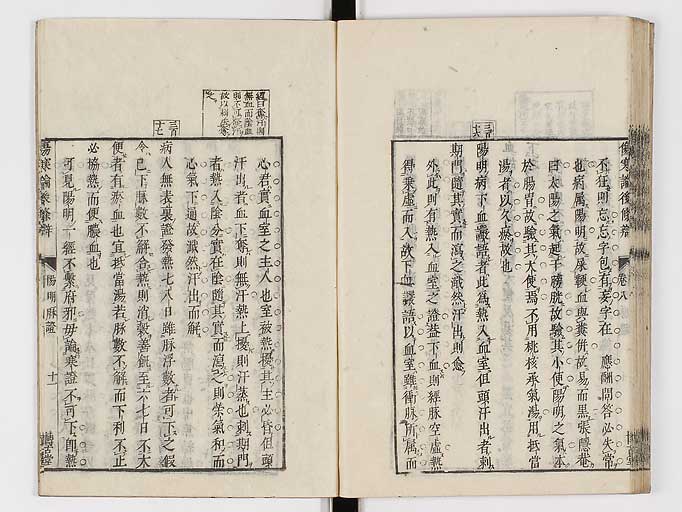 傷寒論後條辨 卷八
不狂則忘忘字包有妄字在 應酬問答必失常
也病屬陽明故尿顆血與糞併故易而黑張隱菴
曰太陽之氣起于膀胱故驗其小便陽明之氣本
於腸胃故驗其大便焉不用桃核承氣湯用抵當
湯者以久瘀故也
三百十六
陽明病下血讝語者此為熱入血室但頭汗出者刺
期門隨其實而瀉之濈然汗出則愈
外此則有熱入血室之證益下血則經脉空虛熱
得乘虛而入故下血讝語以血室雖衝脉所屬而
心君實血室之主人也室被熱擾其主必昏但頭
汗出者血下奪則無汗熱上擾則汗蒸也刺期門
者熱入陰分實在陰隨其實而瀉之則榮氣和而
心氣下通故濈然汗出而解
三百十七
病人無表裏證發熱七八日雖脉浮數者可下之假
令已下脉數不解合熱則消穀善飢至六七日不大
便者有瘀血也宜抵當湯若脉數不解而下利不止
必協熱而便膿血也
可見陽明一經不繫府邪毋論寒證不可下卽熱
傷寒論後條辨 陽明脉證 十一